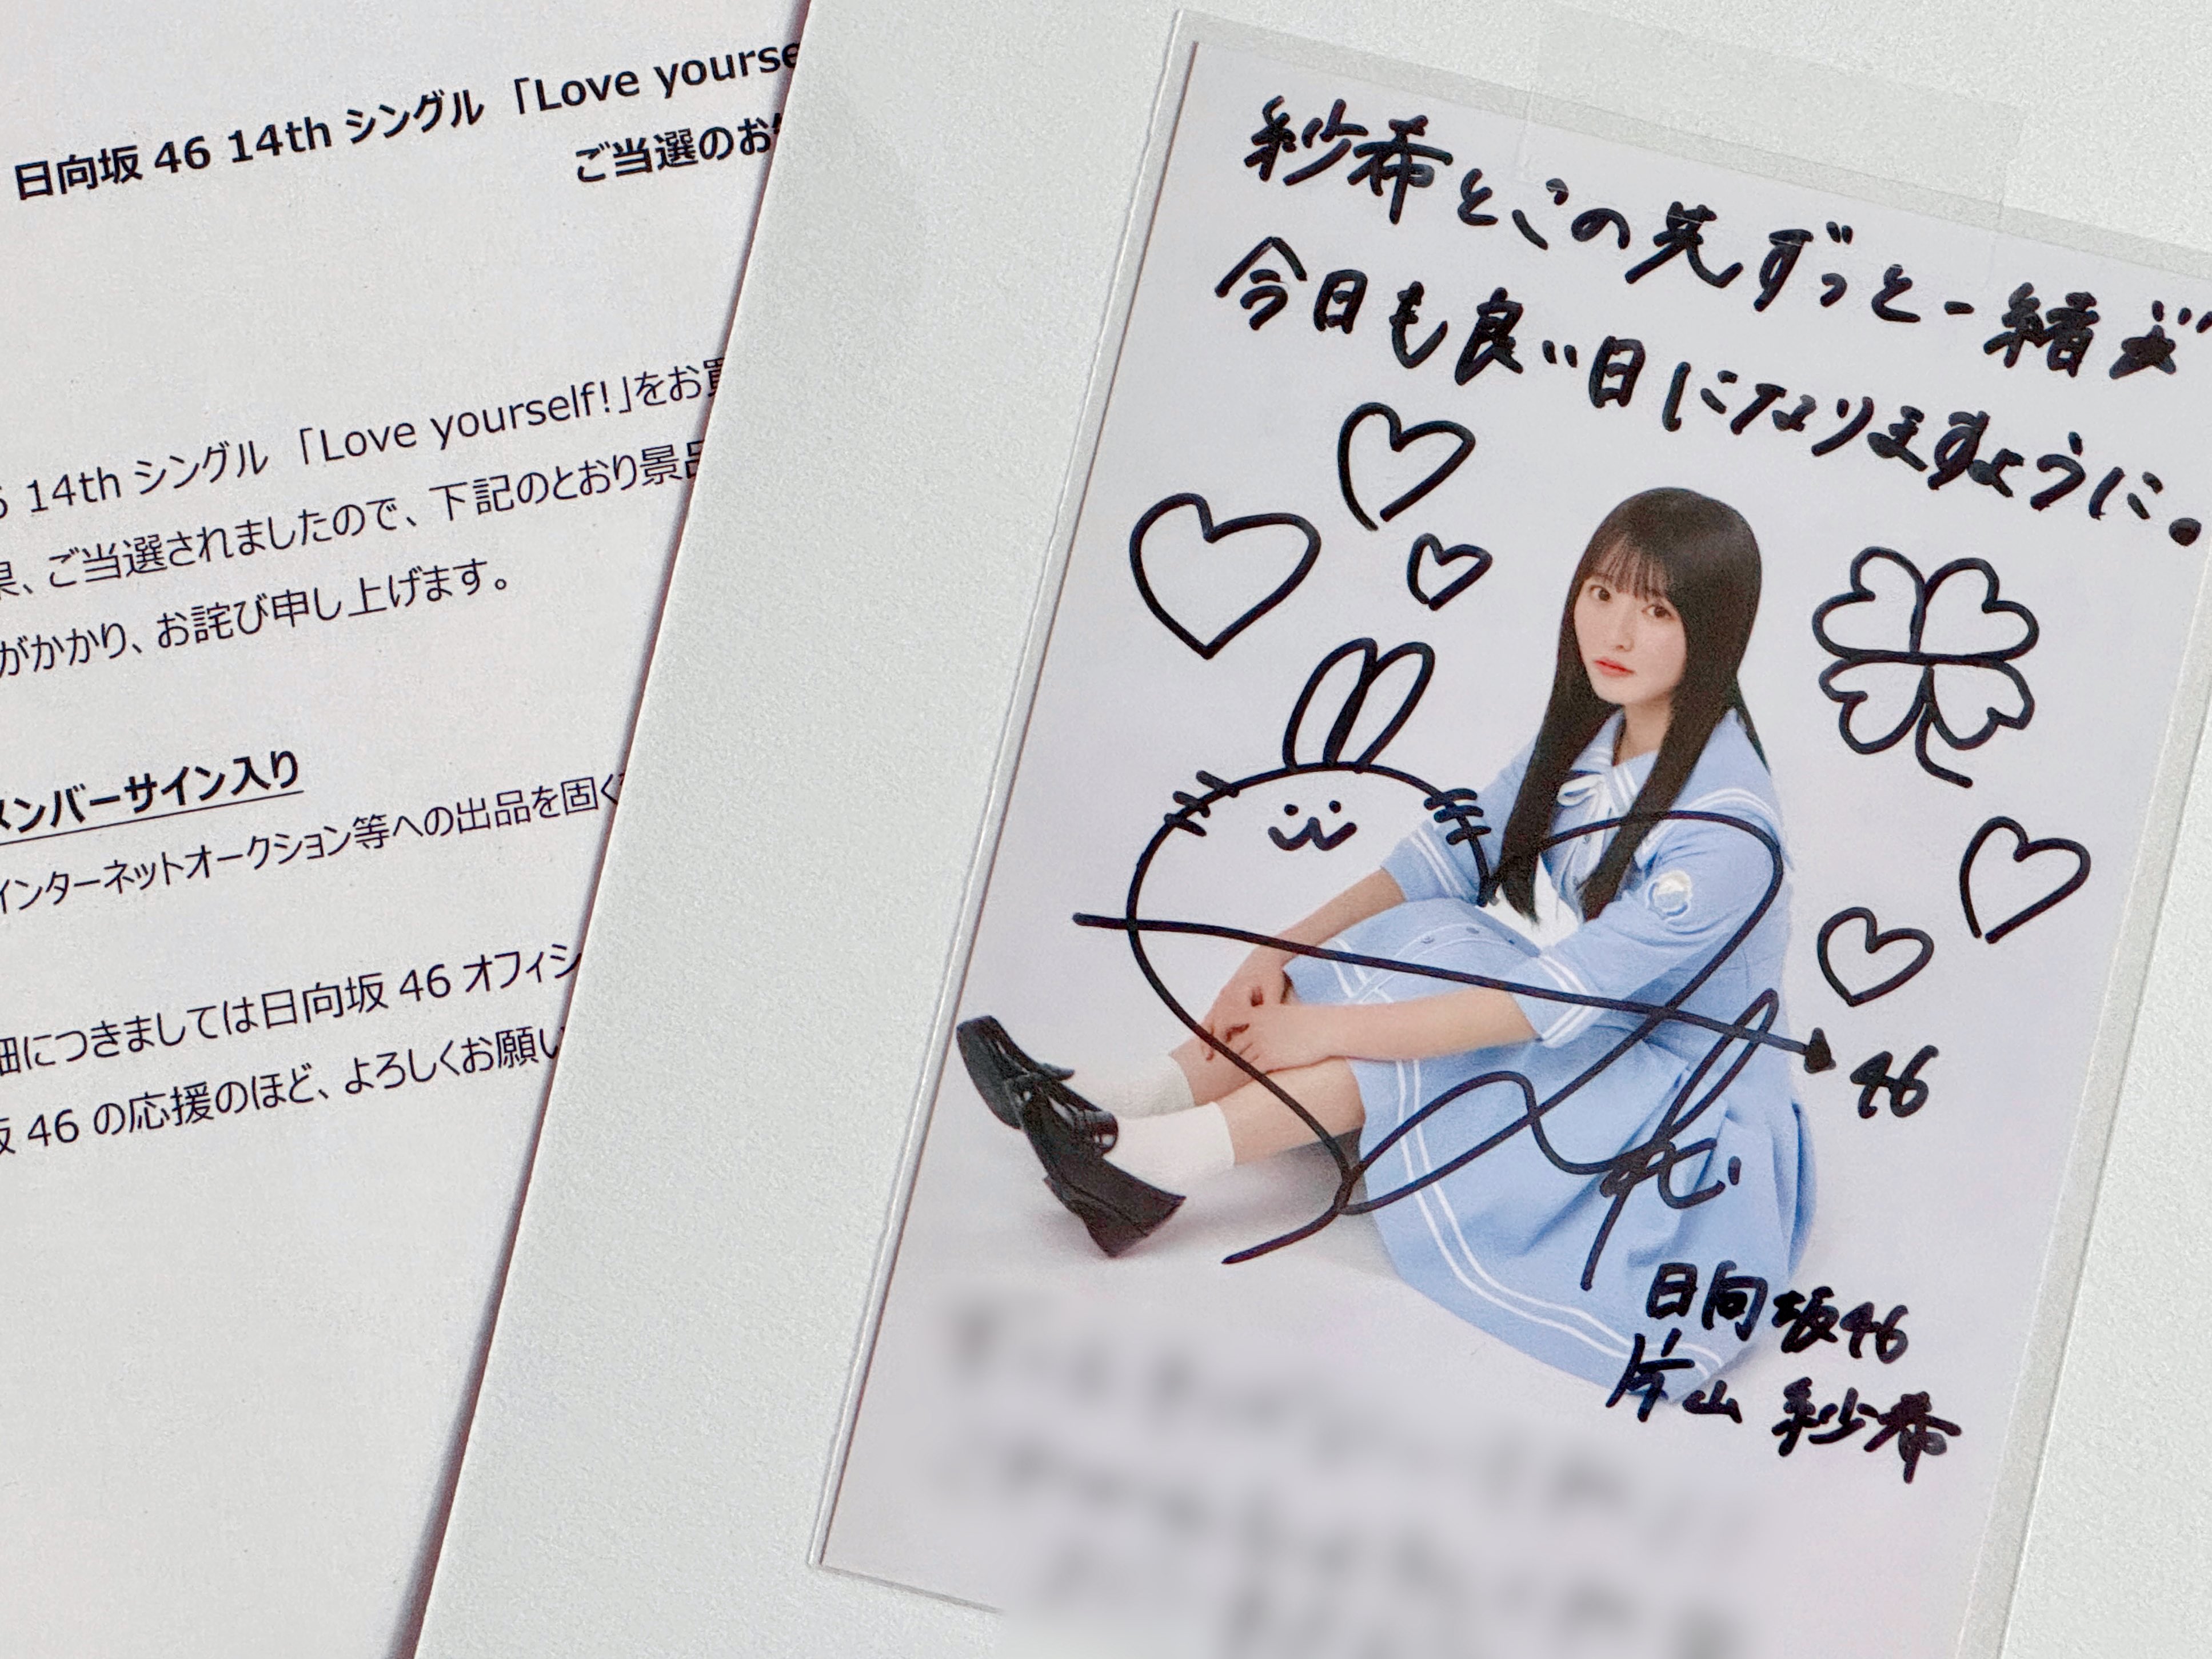 日向坂 46 14th シングル 「Love yourse
ご当選のお
14th シングル 「Love yourself!」をお買
、ご当選されましたので、下記のとおり景品
がかかり、お詫び申し上げます。
メンバーサイン入り
インターネットオークション等への出品を固く
細につきましては日向坂 46 オフィシ
坂 46 の応援のほど、よろしくお願い
紗希とこの先ずっと一緒だ
今日も良い日になりますように。
46
日向坂46
片山 紗希